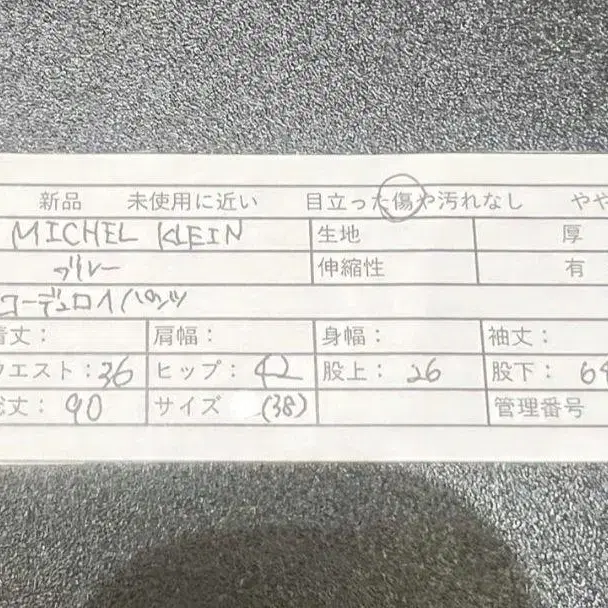 新品 未使用に近い 目立った傷や汚れなし やや
MICHEL KLEIN 生地 厚
グレー 伸縮性 有
コーデュロイパンツ
着丈： 肩幅： 身幅： 袖丈：
ウエスト：36 ヒップ： 42 股上： 26 股下： 64
総丈： 90 サイズ (38) 管理番号